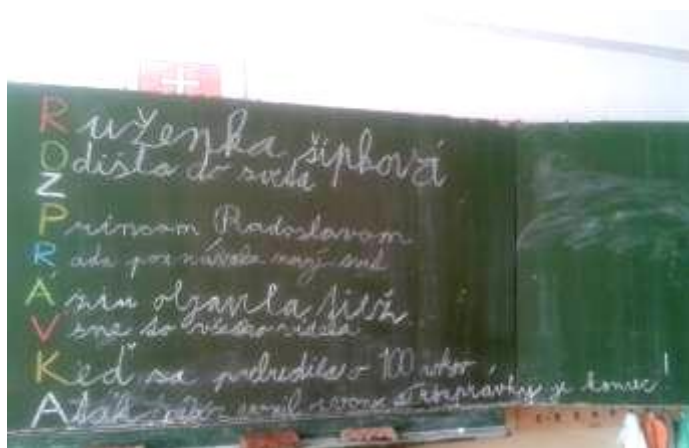 Ruženka Šípková
Odišla do sveta
Z
Princom Radoslavom
Rada poznávala nový svet
Áziu objavila tiež
V sne to všetko videla
Keď sa prebudila o 100 rokov
A tak zvonec a rozprávky je koniec!